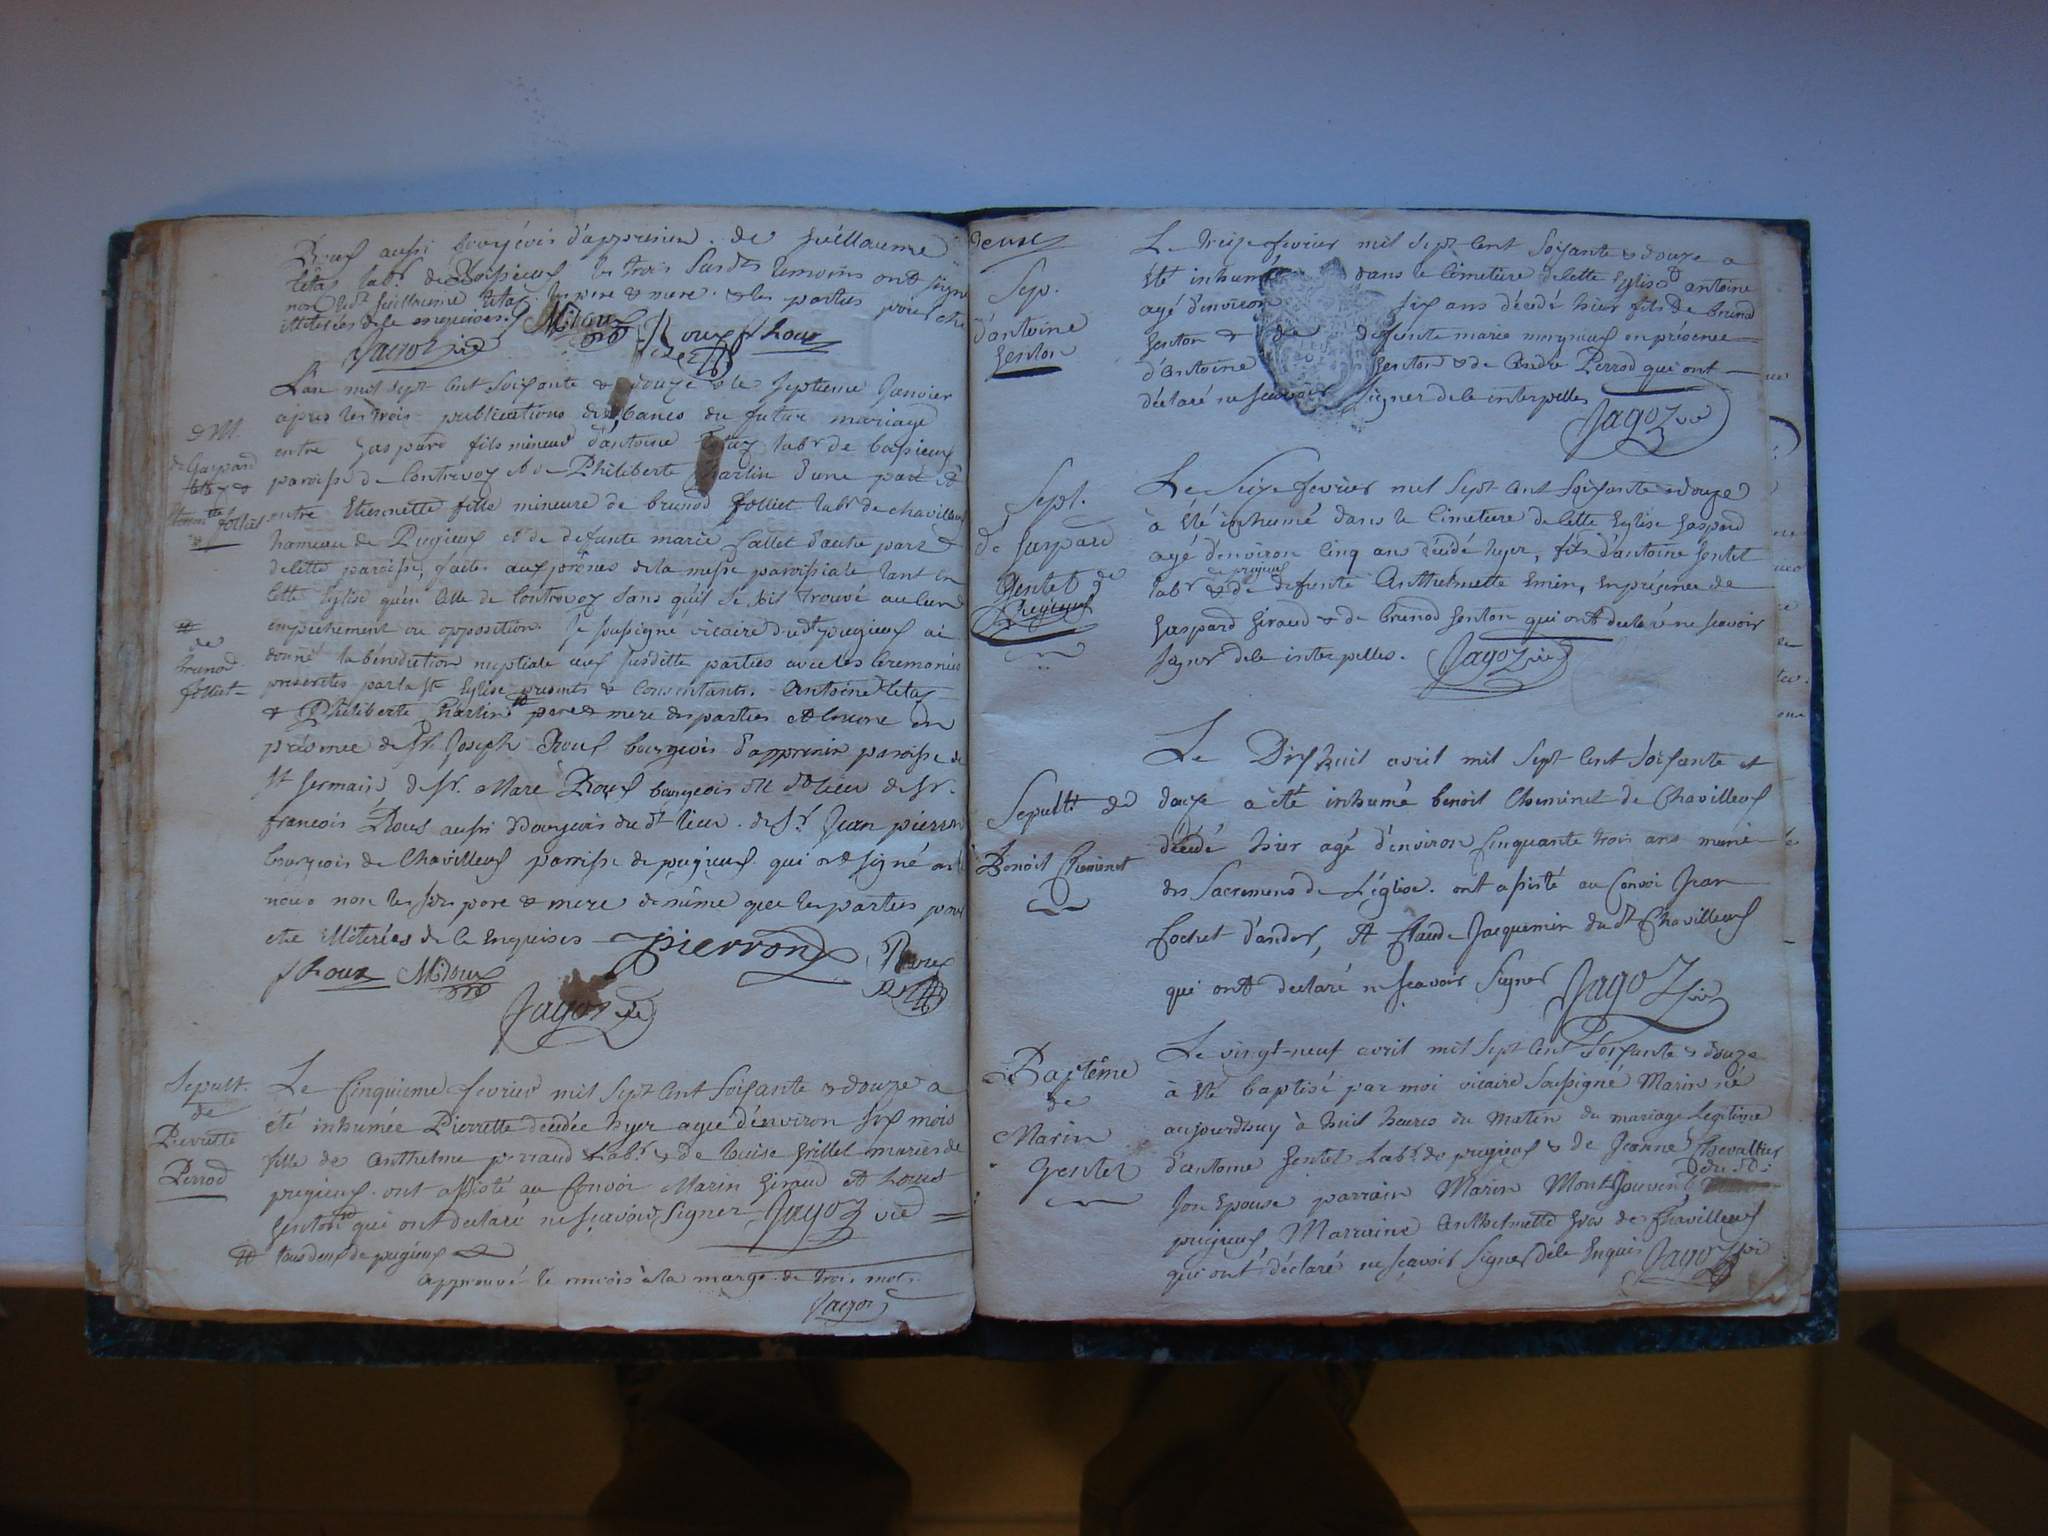 Roux aussi bourgeois d'appresin. de Guillaume
tetaz lab.r de Bossieux les trois susdts temoins ont signé
non led.t Guillaume tetaz. les pere & mere. & les parties pour etre
illiterées de ce enquises.
MRoux Roux fRoux
Jagoz vic
L'an mil sept cent soixante & douze & le septieme Janvier
apres les trois publications des bancs du futur mariage
entre Gaspard fils mineur d'antoine tetaz lab.r de bossieux
& M.
de Gaspard
tetaz &
Etienn.tte folliet
paroisse de Contrevoz et de Philiberte Charlin d'une part Et
entre Etiennette fille mineure de brunod folliet lab.r de chavilleux
hameau de Pugieux et de defunte marie Callet d'autre part
de cette paroisse, faites aux prônes de la messe paroissiale tant en
cette Eglise qu'en celle de Contrevoz sans qu'il se soit trouvé aucun
empechement ou opposition. Je soussigné vicaire dud.t pugieux ai
donné la bénédiction nuptiale aux susdittes parties avec les Ceremonies
# de
brunod
folliet
prescrites par la S.te Eglise presents & Consentants. Antoine tetaz
& Philiberte Charlin # pere & mere des parties et encore en
présence de S.r Joseph Roux bourgeois d'appresin paroisse de
St Germain de S.r. Marc Roux bourgeois du d.t lieu de S.r.
francois Roux aussi Bourgeois du d.t lieu. de S.r Jean pierron
bourgeois de Chavilleux parroisse de pugieux qui ont signé avec
nous non les susd. pere & mere de même que les parties pour
etre illiterées de ce Enquises
pierron Roux
fRoux MRoux
Jagoz vic
Sepult.
de
Pierrette
Perrod
Le Cinquieme fevrier mil sept cent soixante & douze a
été inhumée Pierrette décédée hyer agée d'environ six mois
fille de anthelme perraud Lab.r & de Louise Grillet mariés de
pugieux. ont assisté au Convoi Marin Giraud et Louis
Genton # qui ont declaré ne scavoir signer Jagoz vic
# tous deux de pugieux
approuvé le renvois à la marge de trois mots.
Jagoz
deux
Sep.
d'antoine
Genton
Le treize fevrier mil sept cent soixante & douze a
été inhumé dans le Cimetiere de cette Eglise antoine
agé d'environ six ans décédé hier fils de brunod
Genton & de defunte marie en présence
d'antoine Genton & de andre Perrod qui ont
déclaré ne scavoir signer de ce interpellés
Jagoz vic
Sept.
de Gaspard
Gentet de
Pugieux
Le Seize fevrier mil sept cent soixante & douze
à été inhumé dans le Cimetiere de cette Eglise Gaspard
agé d'environ cinq ans décédé hyer, fils d'antoine Gentet
lab.r de pugieux & de defunte Anthelmette Emin, en présence de
Gaspard Giraud & de brunod Genton qui ont declaré ne scavoir
signer de ce interpellés. Jagoz vic
Sepult.re de
Benoit Cheminet
Le Dix huit avril mil sept cent soixante et
douze a été inhumé benoit Cheminet de Chavilleux
décédé hier agé d'environ cinquante trois ans muni
des Sacremens de L'église. ont assisté au Convoi Jean
Cochet d'andert, et Claude Jacquemin du d.t Chavilleux
qui ont declaré ne scavoir signer Jagoz vic
Baptême
de
Marin
Gentet
Le vingt-neuf avril mil sept cent soixante & douze
à été baptisé par moi vicaire soussigné Marin né
aujourdhuy à huit heures du matin du mariage legitime
d'antoine Gentet Lab.r de pugieux & de Jeanne Chevallier
son Epouse parrain Marin Montjouvend du d.t
pugieux Marraine Anthelmette Gros de Chavilleux
qui ont déclaré ne scavoir signer de ce Enquis Jagoz vic